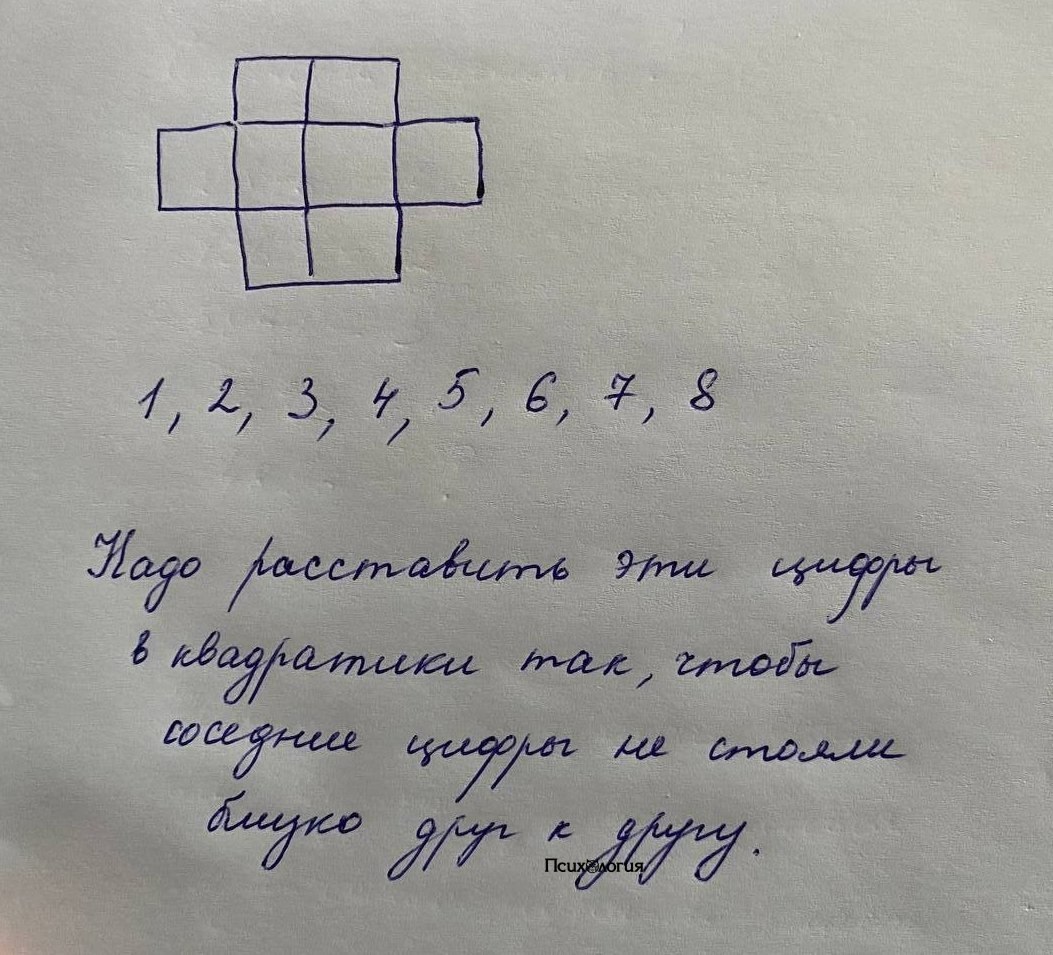 1, 2, 3, 4, 5, 6, 7, 8
Надо расставить эти цифры
в квадратики так, чтобы
соседние цифры не стояли
близко друг к другу.
Психология